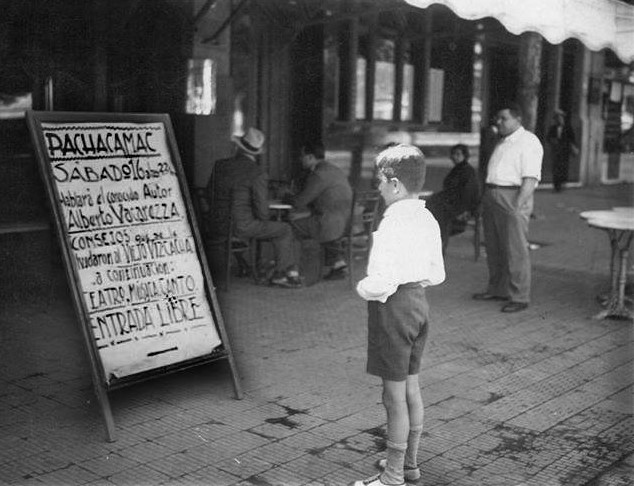 PACHACAMAC
SÁBADO 16 a las 22 hs
Hablará el conocido Autor
Alberto Vacarezza.
CONSEJOS que no le
ayudaron al VIEJO VIZCACHA
a continuación:
TEATRO, MÚSICA, CANTO.
ENTRADA LIBRE